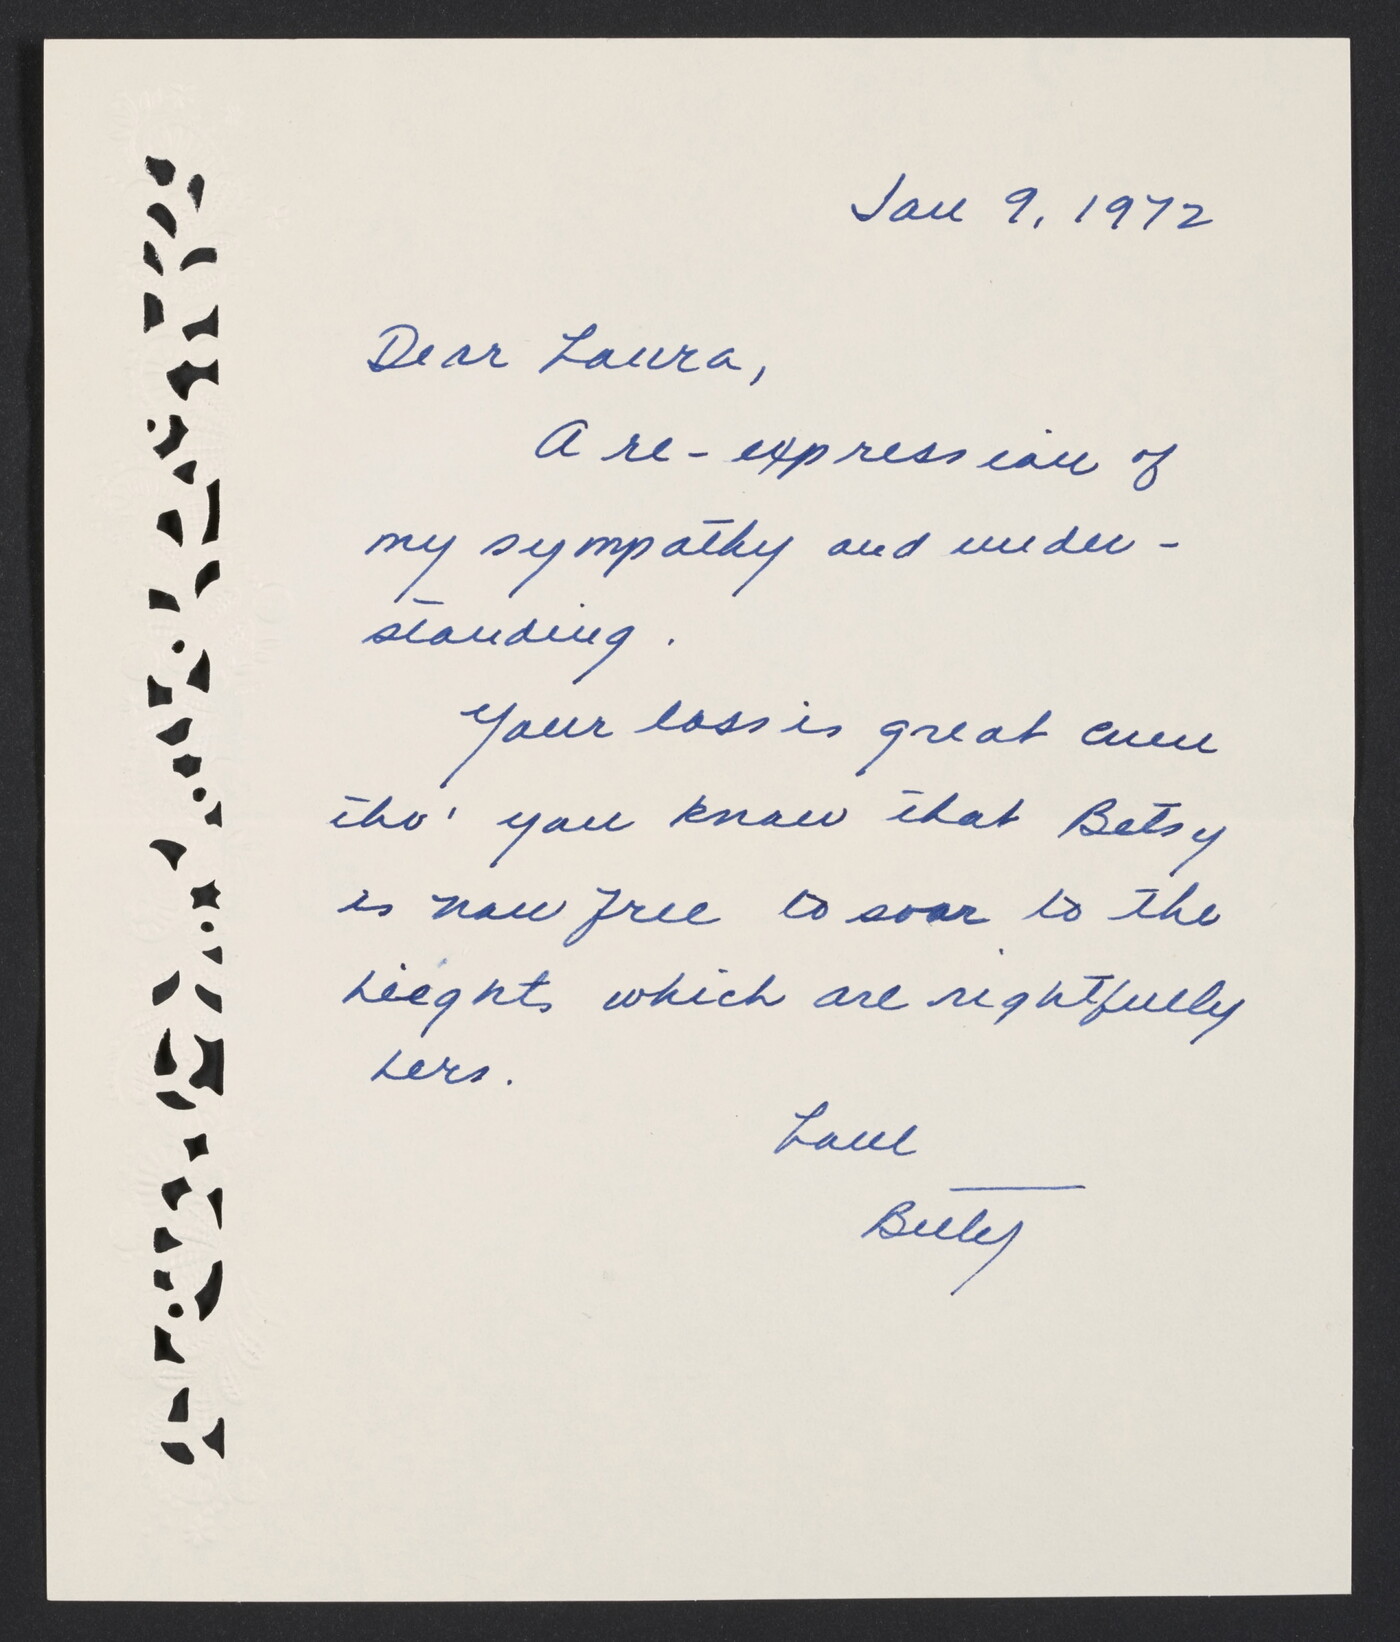 Jan 9, 1972
Dear Laura,
A re-expression of
my sympathy and under-
standing.
Your loss is great even
tho' you know that Betsy
is now free to soar to the
hieghts which are rightfully
hers.
Love
Billy